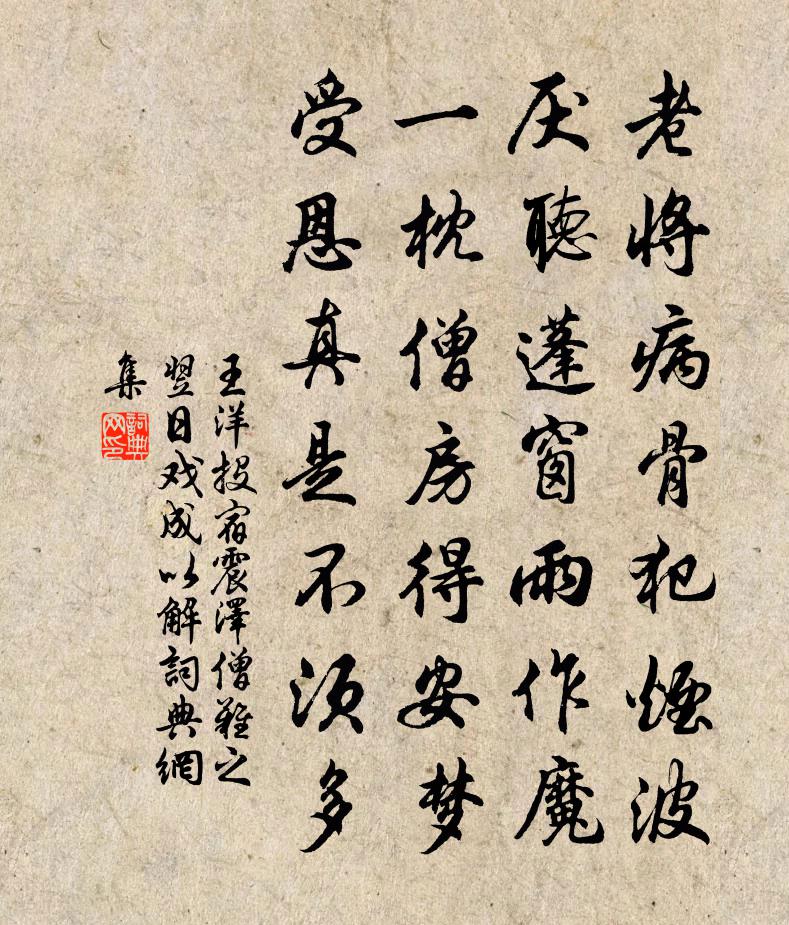 老将病骨犯煙波
厌聽蓬窗雨作魔
一枕僧房得安梦
受恩真是不須多
王洋投宿震澤僧難之
翌日戏成以解詞典網
集
詞典
网印